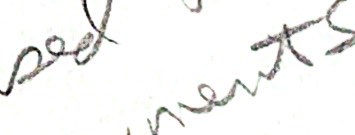 sed
ments